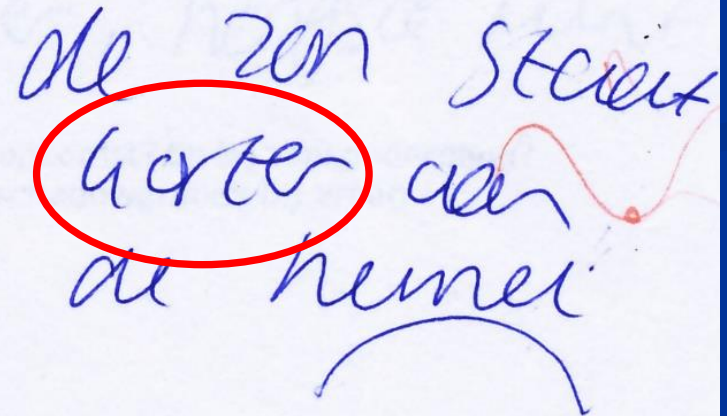 de zon staat
korter aan
de hemel